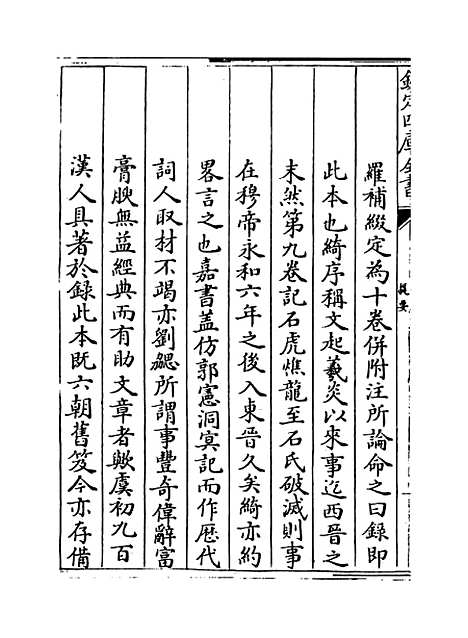 欽定四庫全書
提要
羅補綴定為十卷併附注所論命之曰錄即
此本也綺序稱文起羲炎以來事迄西晉之
末然第九卷記石虎燋龍至石氏破滅則事
在穆帝永和六年之後入東晉久矣綺亦約
畧言之也嘉書盖仿郭憲洞冥記而作歴代
詞人取材不竭亦劉勰所謂事豐奇偉辭富
膏腴無益經典而有助文章者歟虞初九百
漢人具著於錄此本既六朝舊笈今亦存備